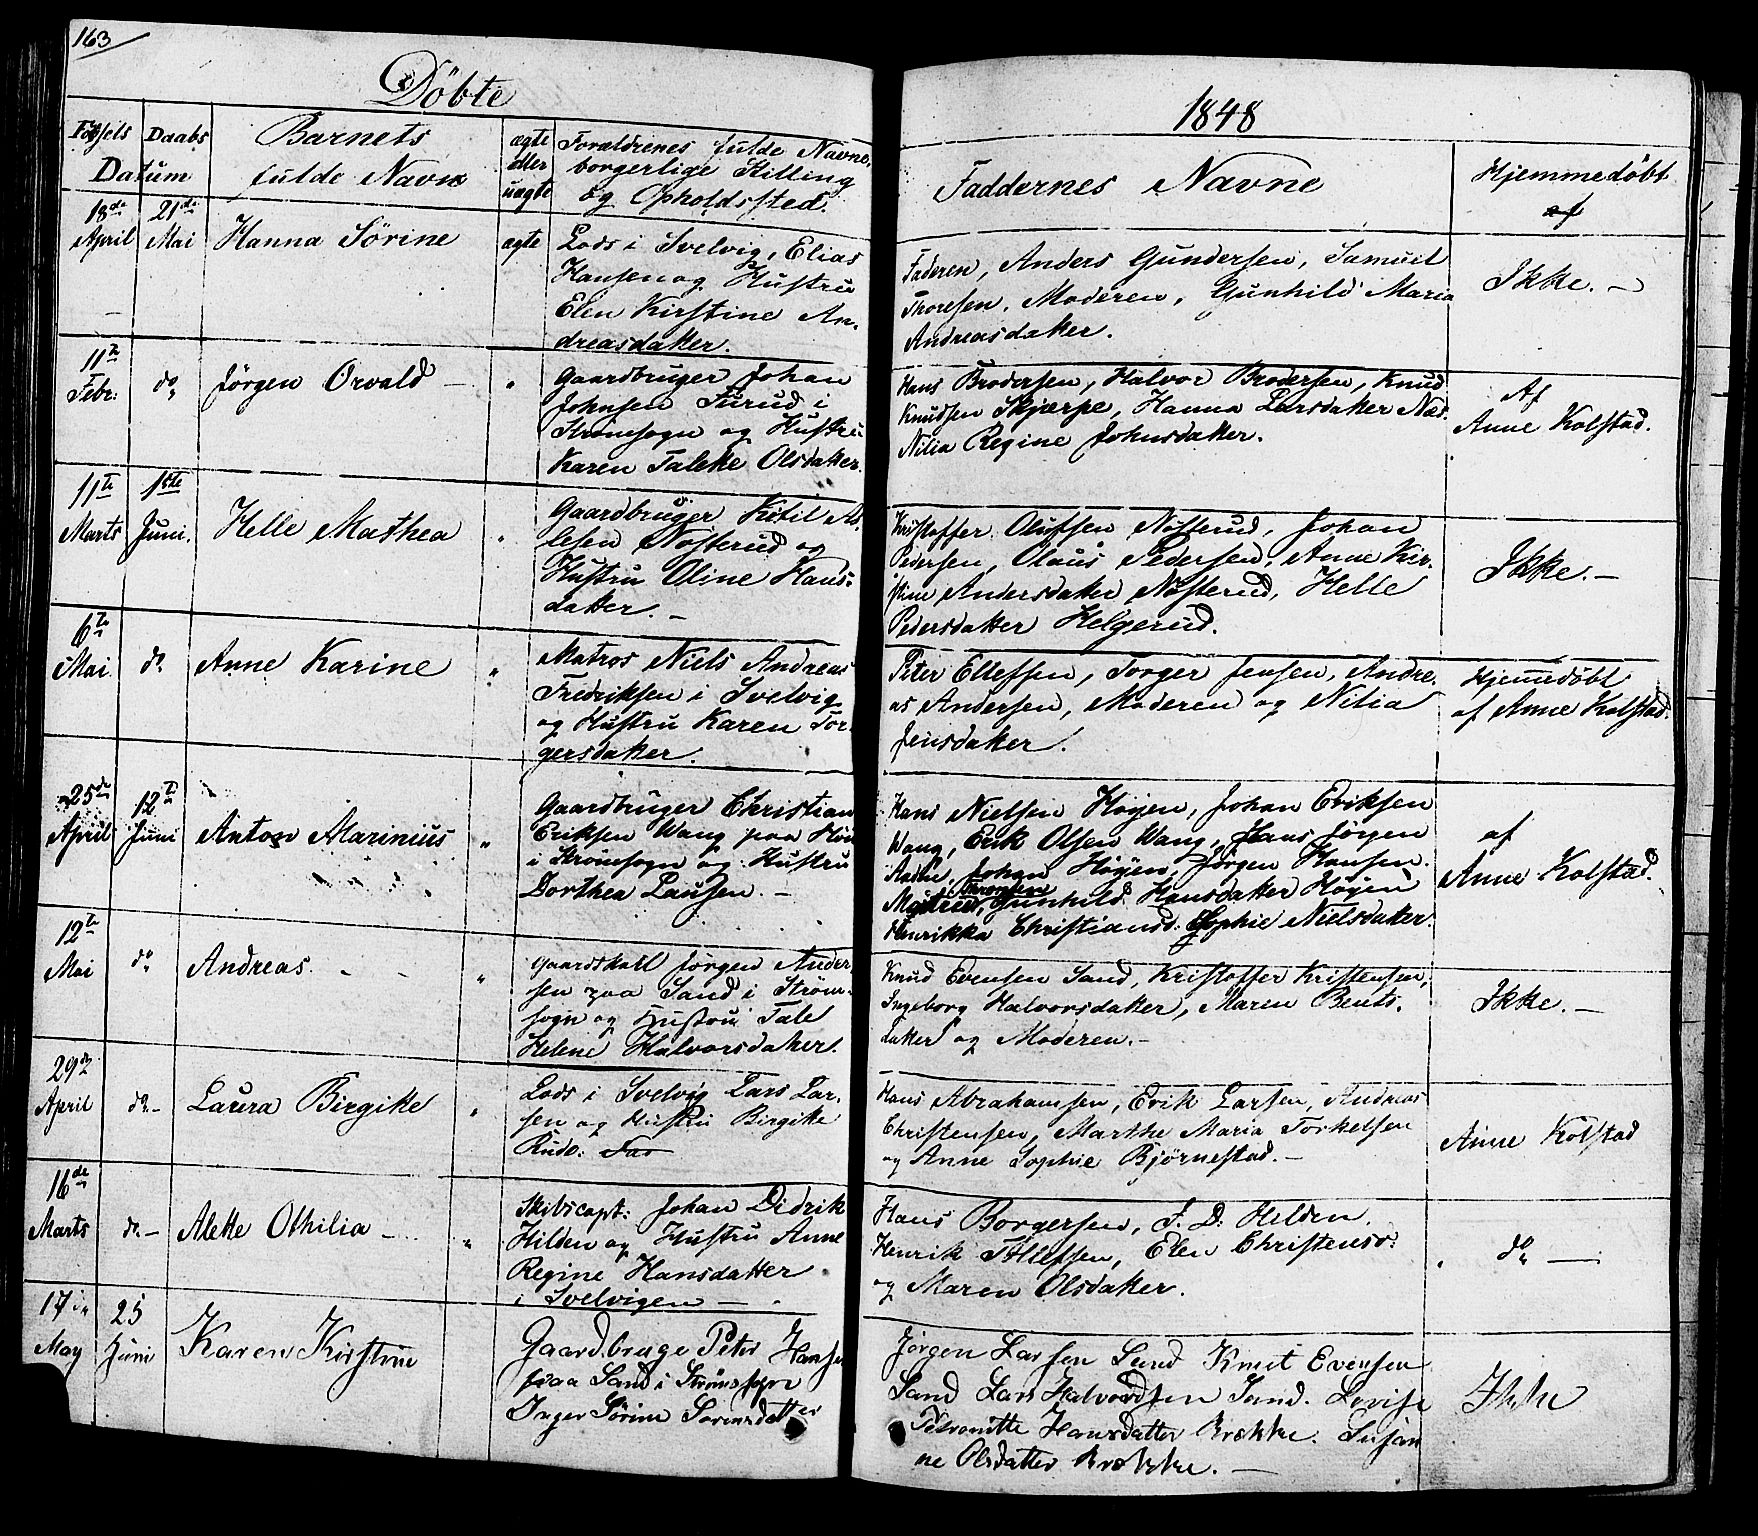 163
Döbte
1848
Födsels Daabs Datum
Barnets fulde Navn
ægte eller uægte
Forældrenes fulde Navne, borgerlige Stilling og Opholdssted.
Faddernes Navne
Hjemmedöbt af
18de April
21de Mai
Hanna Sörine
ægte
Lods i Svelvig, Elias
Hansen og Hustru
Elen Kirstine An-
dreasdatter.
Faderen, Anders Gundersen, Samuel
Thoresen, Moderen, Gunhild Maria
Andreasdatter.
Ikke. —
11te Febr:
do
Jörgen Orvald —
"
Gaardbruger Johan
Johnsen Turud i
Strömsogn og Hustru
Karen Taleke Olsdatter.
Hans Brodersen, Halvor Brodersen, Knud
Knudsen Skjærpe, Hanna Larsdatter Næs.
Nilia Regine Johnsdatter.
Af
Anne Kolstad.
11te Marts
1ste Juni.
Helle Mathea
"
Gaardbruger Kitil
lesen Nosterud og
Hustru Oline Hans-
datter. —
Kristoffer Olufsen Nosterud, Johan
Pedersen, Olaus Pedersen, Anne Kir-
stine Andersdatter Nosterud, Helle
Pedersdatter Helgerud.
Ikke. —
6te Mai
do
Anne Karine
"
Matros Niels Andreas
Fredriksen i Svelvig
og Hustru Karen Tor-
gersdatter.
Peter Ellefsen, Torger Jensen, Andre-
as Andersen, Moderen og Nilia
Jensdatter.
Hjemmedöbt
af Anne Kolstad.
25de April
12te Juni
Anton Marinius
"
Gaardbruger Christian
Eriksen Wang paa
i Strömsogn og Hustru
Dorthea Laursen. —
Hans Nielsen Höyen, Johan Eriksen
Wang, Erik Olsen Wang, Hans Jörgen
Johan Höyen, Jörgen Hansen
Gunhild Hansdatter Höyen
Henrikka Christiansd. Sophie Nielsdatter.
af
Anne Kolstad.
12te Mai
do
Andreas.
"
Gaardskarl Jörgen Ander
sen paa Sand i Ström-
sogn og Hustru Tale
Helene Halvorsdatter.
Knud Evensen Sand, Kristoffer Kristensen,
Ingeborg Halvorsdatter, Maren Bents-
datter og Moderen. —
Ikke. —
29de April
do —
Laura Birgitte
"
Lods i Svelvig Lars Lar-
sen og Hustru Birgitte
Hans Abrahamsen, Erik Larsen, Andreas
Christensen, Marthe Maria Torkelsen
og Anne Sophie Björnestad. —
Anne Kolstad
16de Marts
do —
Alette Othilia —
"
Skibscapt: Johan Didrik
Hilden og Hustru Anne
Regine Hansdatter
i Svelvigen —
Hans Borgersen, J. D. Hilden.
Henrik Ellefsen, Elen Christensd:
og Maren Olsdatter.
do —
17de May
25 Juni
Karen Kirstine
Gaardbruge Peter Hansen
paa Sand i Strömsogn
Inger Sörine Sorensdatter
Jörgen Larsen Sand Knut Evensen
Sand Lars Halvordsen Sand. Lovise
Petronitte Hansdatter Brække. Susan
ne Olsdatter Brække. —
Ikke